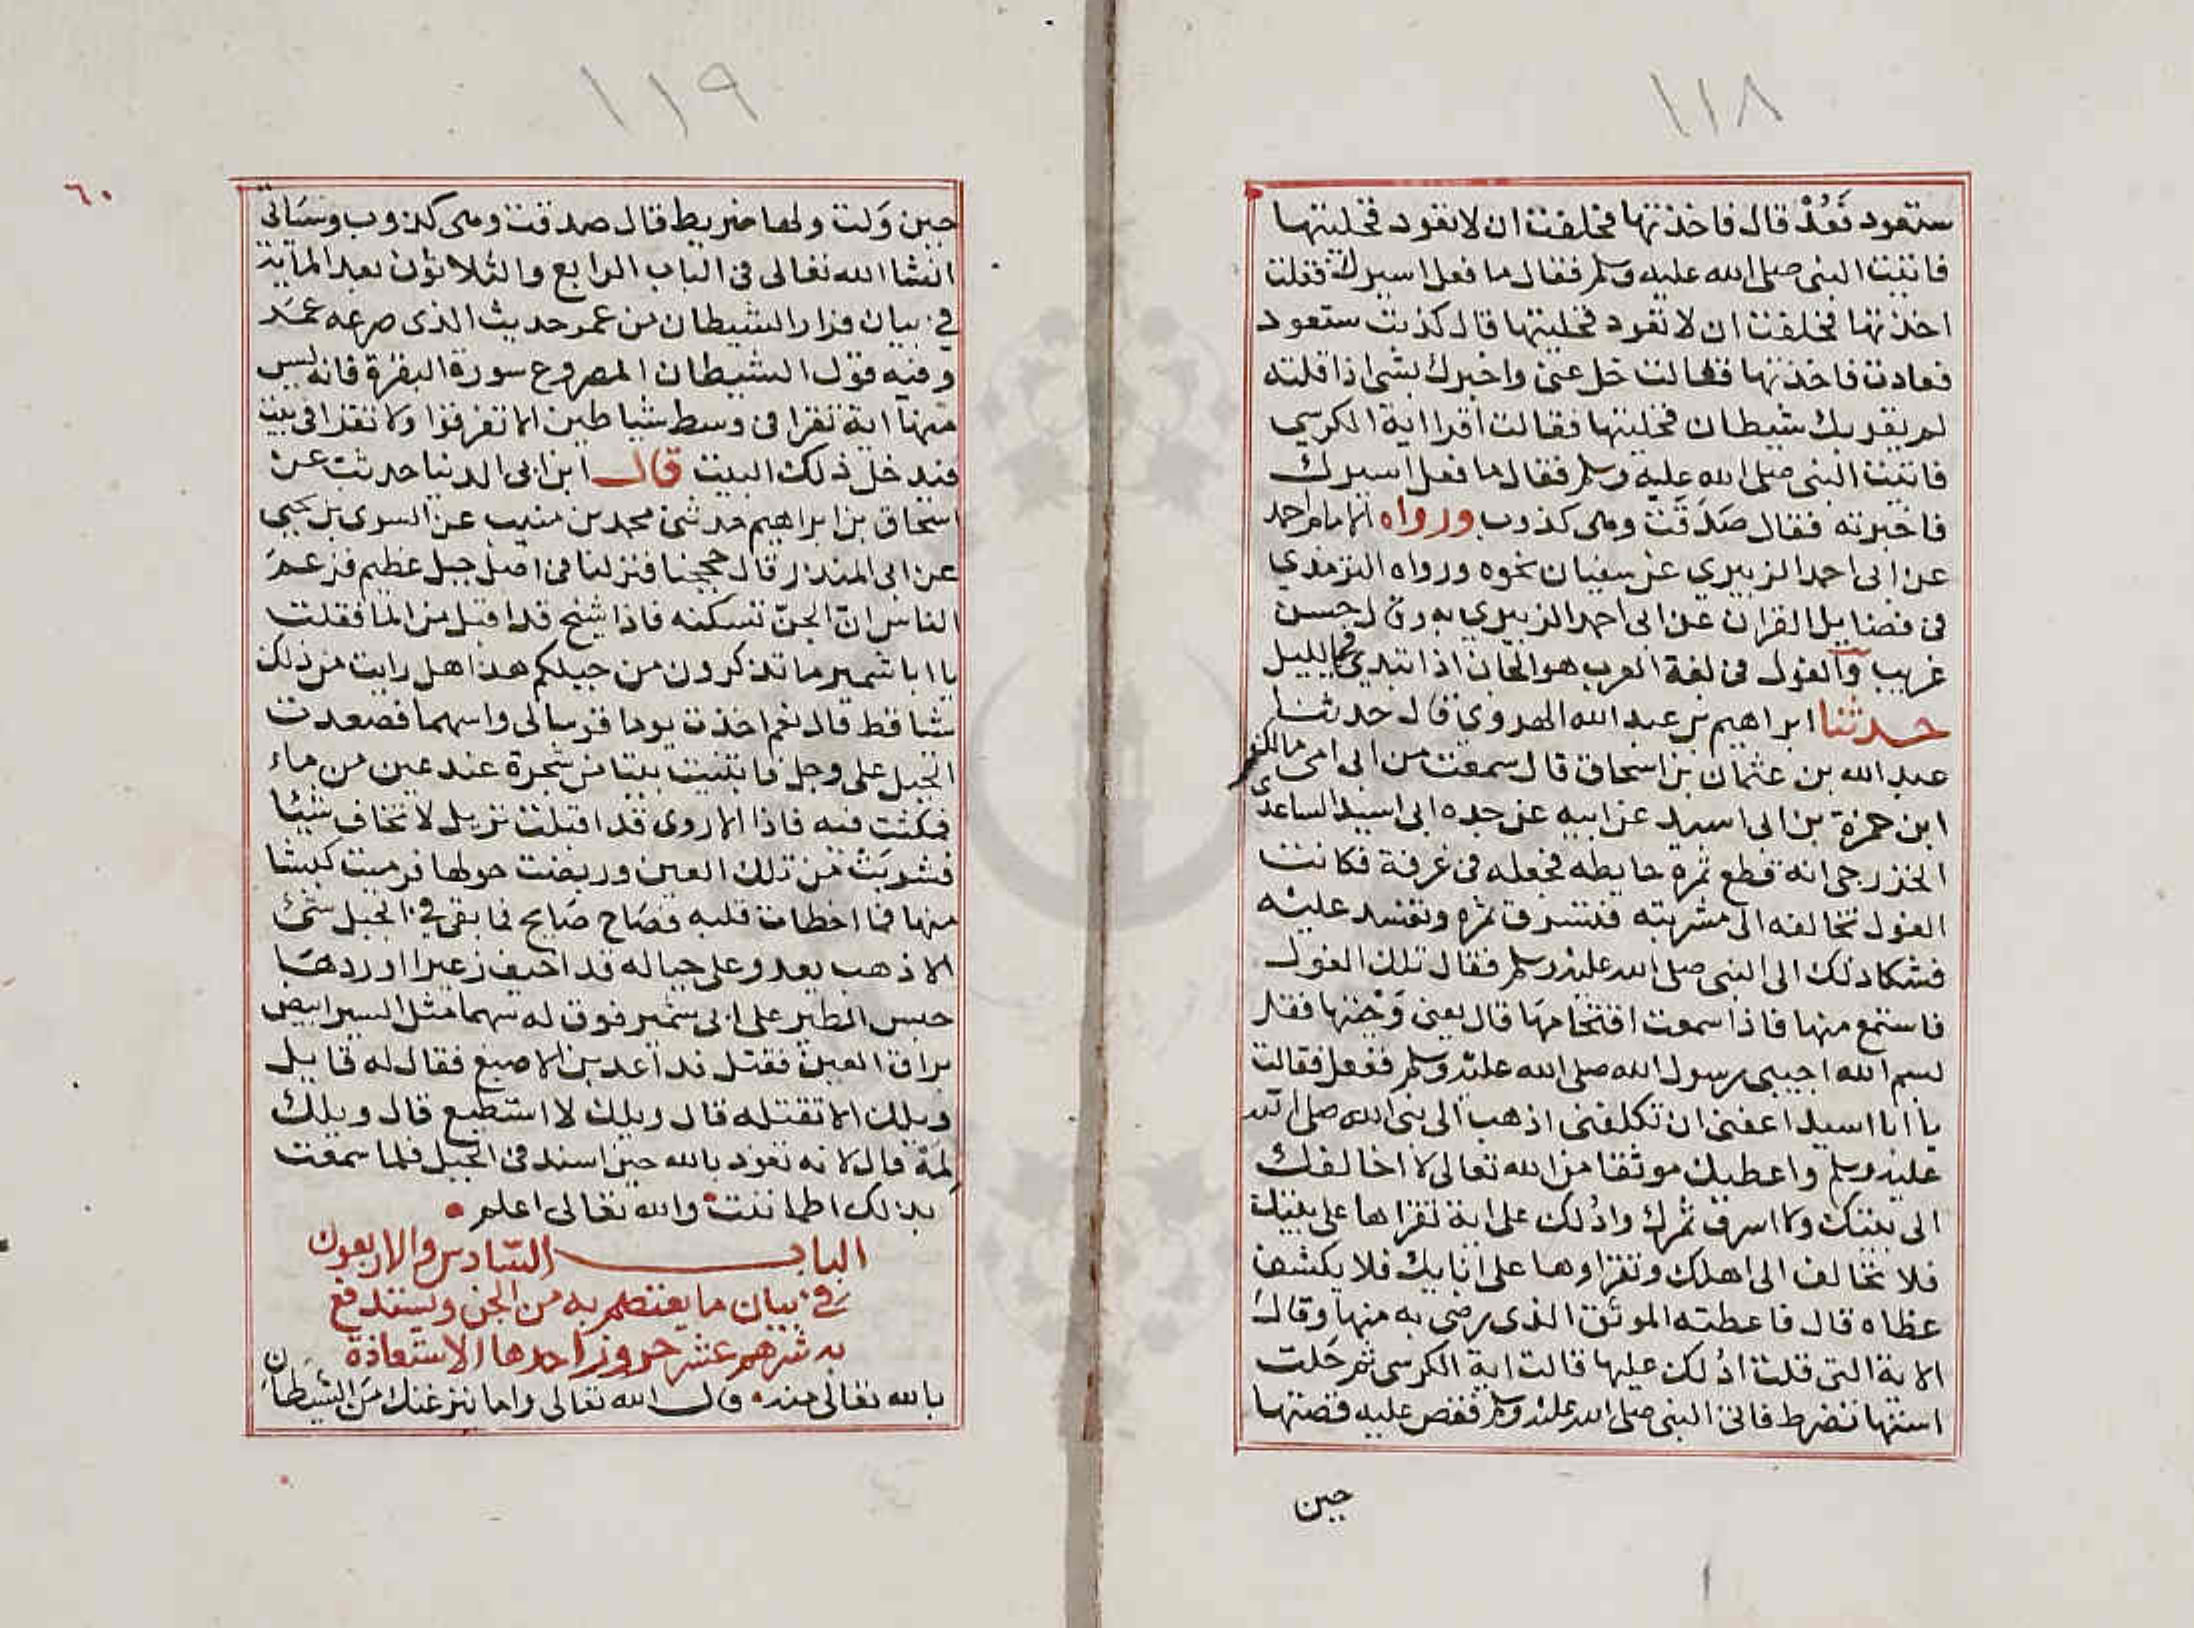 ١١٨
ستعود تَعُدْ قال فاخذتها فحلفت ان لا تعود فخليتها
فاتيت النبى صلى الله عليه وسلم فقال ما فعل اسيرك فقلت
اخذتها فحلفت ان لا تعود فخليتها قال كذبت ستعود
فعادت فاخذتها فقالت خل عنى واخبرك بشى اذا قلته
لم يقربك شيطان فخليتها فقالت اقرا اية الكرسي
فاتيت النبى صلى الله عليه وسلم فقال ما فعل اسيرك
فاخبرته فقال صَدَقَتْ وهى كذوب ورواه الامام احمد
عن ابى احمد الزبيري عن سفيان نحوه ورواه الترمذي
فى فضايل القران عن ابى احمد الزبيري به وقال حسن
غريب والغول فى لغة العرب هو الجان اذا تبدي بالليل
حدثنا ابراهيم بن عبد الله الهروى قال حدثنا
عبد الله بن عثمان بن اسحاق قال سمعت من ابى امى مالك
ابن حمزة بن ابى اسيد عن ابيه عن جده ابى اسيد الساعدى
الخزرجى انه قطع تمره حايطه فجعله فى غرفة فكانت
الغول تخالفه الى مشربته فتسرق تمره وتفسد عليه
فشكا ذلك الى النبى صلى الله عليه وسلم فقال تلك الغول
فاستمع منها فاذا سمعت اقتحامها قال يعنى وَجْبتها فقل
بسم الله اجيبى رسول الله صلى الله عليه وسلم ففعل فقالت
يا ابا اسيد اعفنى ان تكلفنى اذهب الى نبى الله صلى الله
عليه وسلم واعطيك موثقا من الله تعالى لا اخالفك
الى بيتك ولا اسرق تمرك وادُلك على اية تقراها على بيتك
فلا تخالف الى اهلك وتقراوها على انايك فلا يكشف
غطاه قال فاعطته الموثق الذى رضى به منها وقال
الاية التى قلت ادُلك عليها قالت اية الكرسى ثم حَلت
استها تضرط فاتى النبى صلى الله عليه وسلم فقص عليه قصتها
حين
١١٩
٦٠
حين وَلت ولها ضريط قال صدقت وهى كذوب وسَياتى
انشا الله تعالى فى الباب الرابع والثلاثون بعد الماية
فى بيان فرار الشيطان من عمر حديث الذى صرعه عمَر
وفيه قول الشيطان المصروع سورة البقرة فانه ليس
منها اية تقرا فى وسط شياطين الا تفرقوا ولا تقرا فى بيت
فيدخل ذلك البيت قال ابن ابى الدنيا حدثت عن
اسحاق بن ابراهيم حدثنى محمد بن منيب عن السرى بن يحيى
عن ابى المنذر قال حججنا فنزلنا فى اصل جبل عظيم فزعم
الناس انّ الجنّ تسكنه فاذا شيخ قد اقبل من الما فقلت
يا ابا شمير ما تذكرون من جبلكم هذا هل رايت من ذلك
شيا قط قال نعم اخذت يوما قوسا لى واسهما فصعدت
الجبل على وجل فابتنيت بيتا من شجرة عند عين من ماء
فمكثت فيه فاذا الاروى قد اقبلت تزيل لا تخاف شيئا
فشربَتْ من تلك العين وربضت حولها فرميت كبشا
منها فما اخطات قلبه فصَاح صَايح فما بقى فى الجبل شئ
الا ذهب يعدو على حياله قد اخيف زعيرا اوردهَا
حبس الطير على ابى شمير فوق له سهما مثل السير ابيض
براق العين فقتل قد اعد بين الاصبع فقال له قايل
ويلك الا تقتله قال ويلك لا استطيع قال ويلك
لمهْ قال لانه تعوذ بالله حين اسند فى الجبل فلما سمعت
بذلك اطماننت والله تعالى اعلم
الباب السّادس والاربعون
فى بيان ما يعتصم به من الجن ويستدفع
به شرهم عشر حروز احدها الاستعاذة
بالله تعالى منه قال الله تعالى واما ينزغنك مَن الشيطان